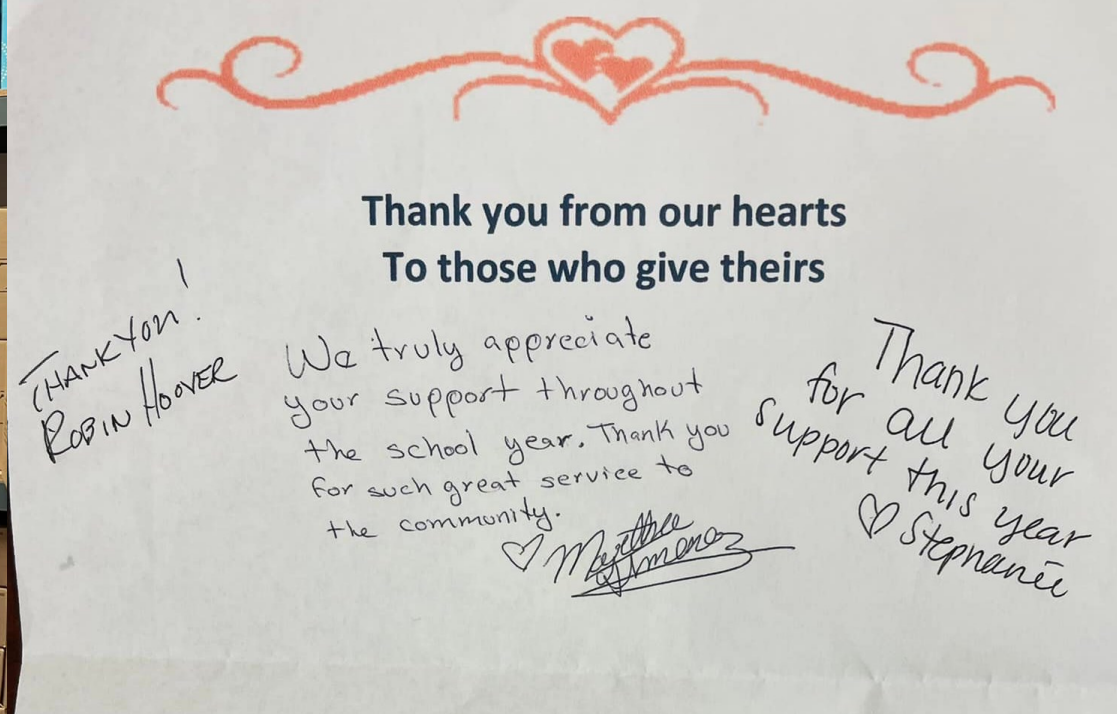 Thank you from our hearts
To those who give theirs
THANK YOU!
ROBIN HOOVER
We truly appreciate
your support throughout
the school year. Thank you
for such great service to
the community.
Thank you
for all your
support this year
♡ Stephanie